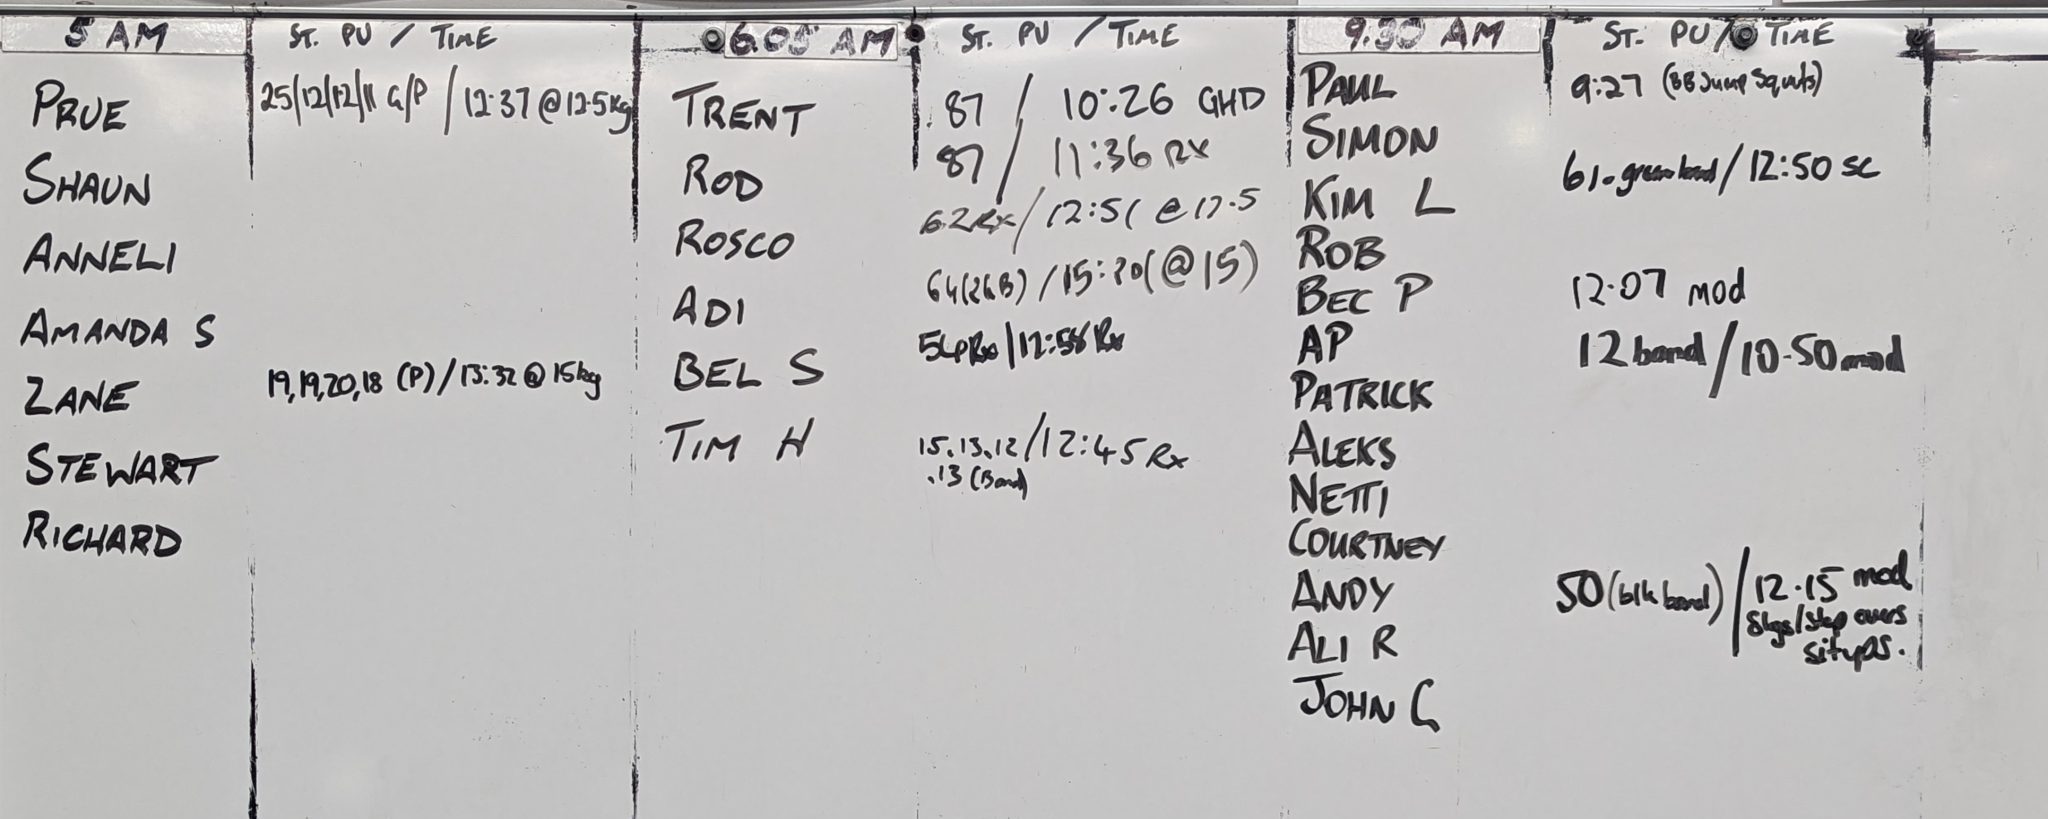 5 AM
ST. PU / TIME
PRUE 25/12/12/11 G/P / 12:37 @ 12.5kg
SHAUN
ANNELI
AMANDA S
ZANE 19,19,20,18 (P) / 13:32 @ 15kg
STEWART
RICHARD
6.05 AM
ST. PU / TIME
TRENT 87 / 10:26 GHD
ROD 87 / 11:36 RX
ROSCO 62 RX / 12:51 @ 17.5
ADI 64 / 15:20 (@ 15)
BEL S Rx / 12:58 Rx
TIM H 15.13.12 / 12:45 Rx
.13 (Band)
9.30 AM
ST. PU / TIME
PAUL 9:27 (BB Jump Squats)
SIMON
KIM L 61. green band / 12:50 SC
ROB
BEC P 12.07 mod
AP 12 band / 10.50 mod
PATRICK
ALEKS
NETTI
COURTNEY
ANDY 50 (blk band) / 12.15 mod
kgs / step overs
ALI R situps.
JOHN G